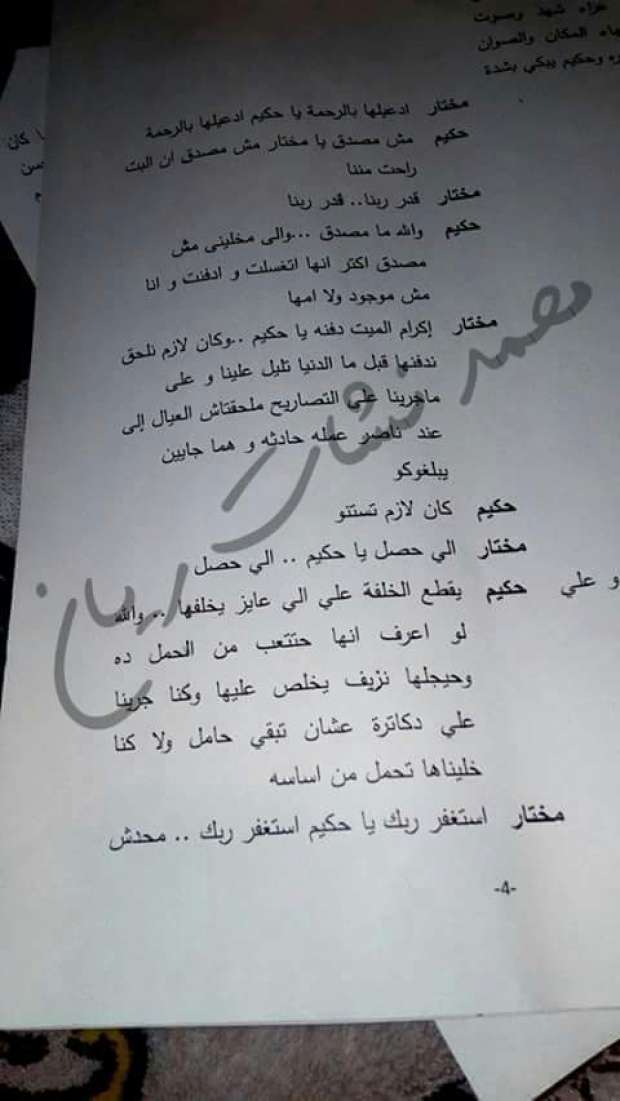 عزاء شهد وبصوت
المكان والصوان
وحكيم يبكي بشدة
مختار ادعيلها بالرحمة يا حكيم ادعيلها بالرحمة
حكيم مش مصدق يا مختار مش مصدق ان البت
راحت مننا
مختار قدر ربنا.. قدر ربنا
حكيم والله ما مصدق ...والى مخلينى مش
مصدق اكتر انها اتغسلت و ادفنت و انا
مش موجود ولا امها
مختار إكرام الميت دفنه يا حكيم ..وكان لازم نلحق
ندفنها قبل ما الدنيا تليل علينا و على
ماجرينا علي التصاريح ملحقتاش العيال إلى
عند ناصر عمله حادثه و هما جايين
يبلغوكو
حكيم كان لازم تستنو
مختار الي حصل يا حكيم .. الي حصل
حكيم يقطع الخلفة علي الي عايز يخلفها .. والله
لو اعرف انها حتتعب من الحمل ده
وحيجلها نزيف يخلص عليها وكنا جرينا
علي دكاترة عشان تبقي حامل ولا كنا
خليناها تحمل من اساسه
مختار استغفر ربك يا حكيم استغفر ربك .. محدش
-4-
كان
و علي
محمد نشات ريان